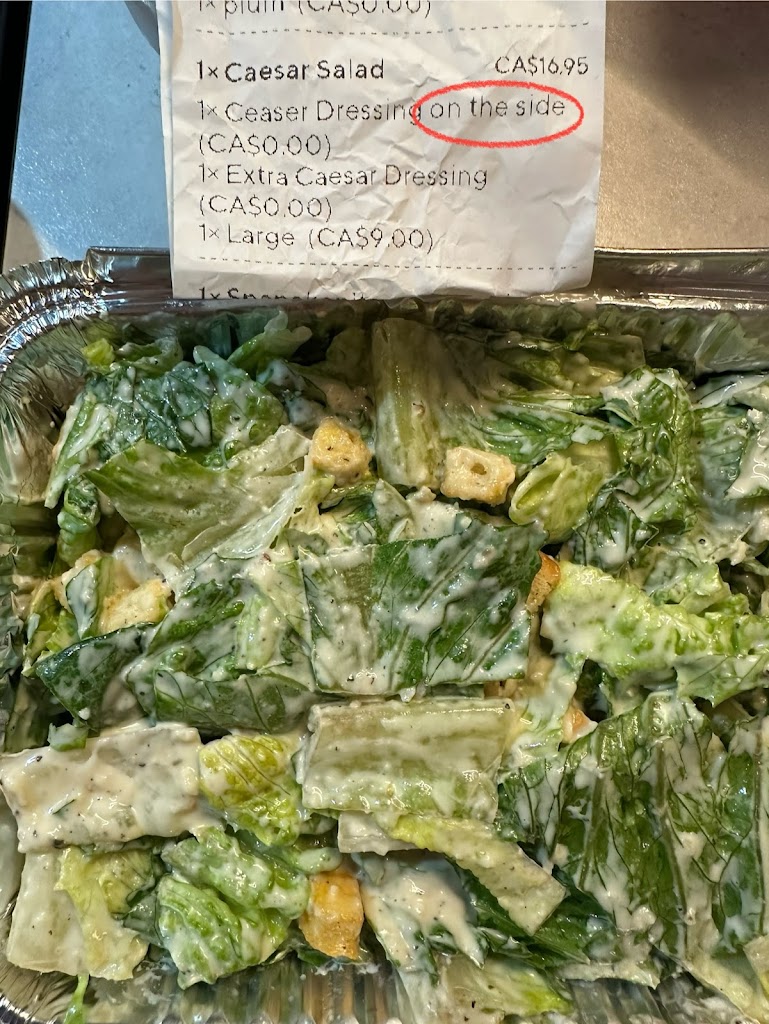 1× plum (CA$0.00)
1× Caesar Salad CA$16.95
1× Ceaser Dressing on the side
(CA$0.00)
1× Extra Caesar Dressing
(CA$0.00)
1× Large (CA$9.00)
1×